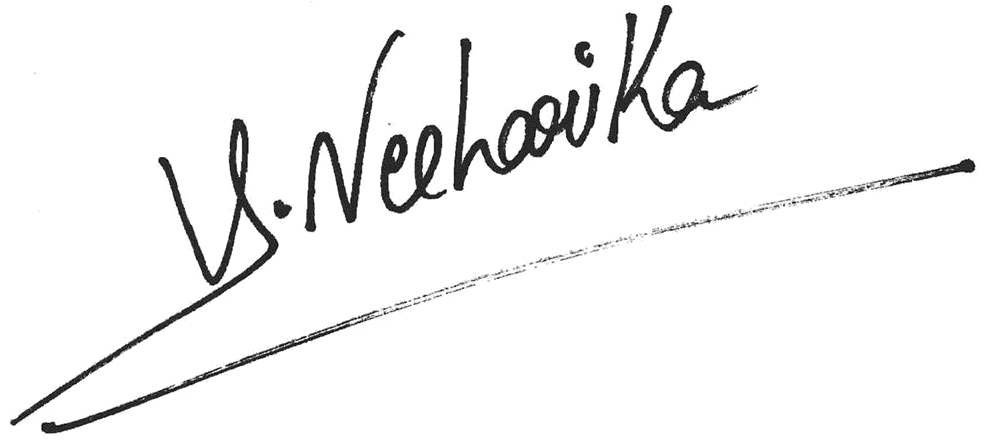 Y. Neehaarika